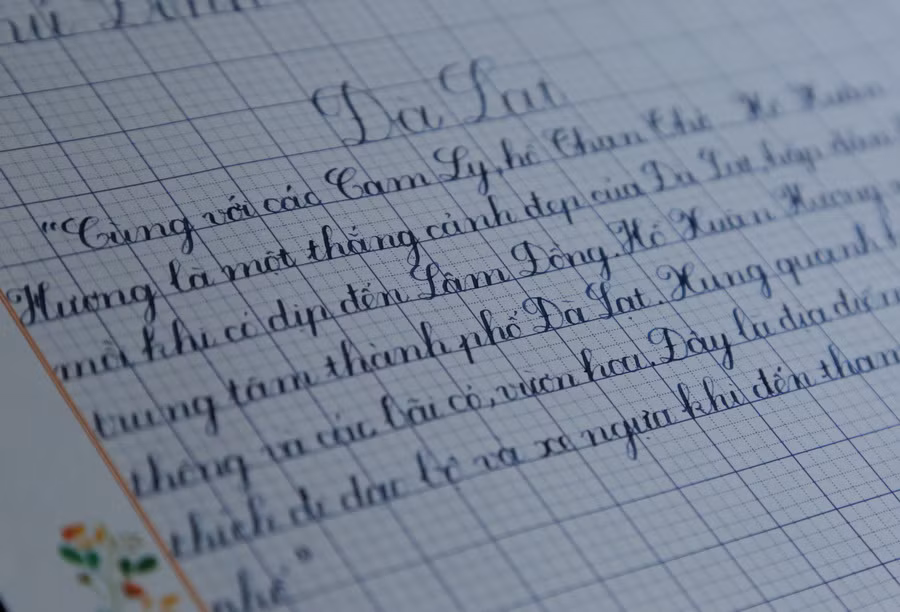 Đà Lạt
"Cùng với các Cam Ly, hồ Than Thở, Hồ Xuân
Hương là một thắng cảnh đẹp của Đà Lạt, hấp dẫn
mỗi khi có dịp đến Lâm Đồng. Hồ Xuân Hương
trung tâm thành phố Đà Lạt. Xung quanh
thông và các bãi cỏ, vườn hoa. Đây là địa điểm
thích đi dạo bộ và xe ngựa khi đến
nhé"